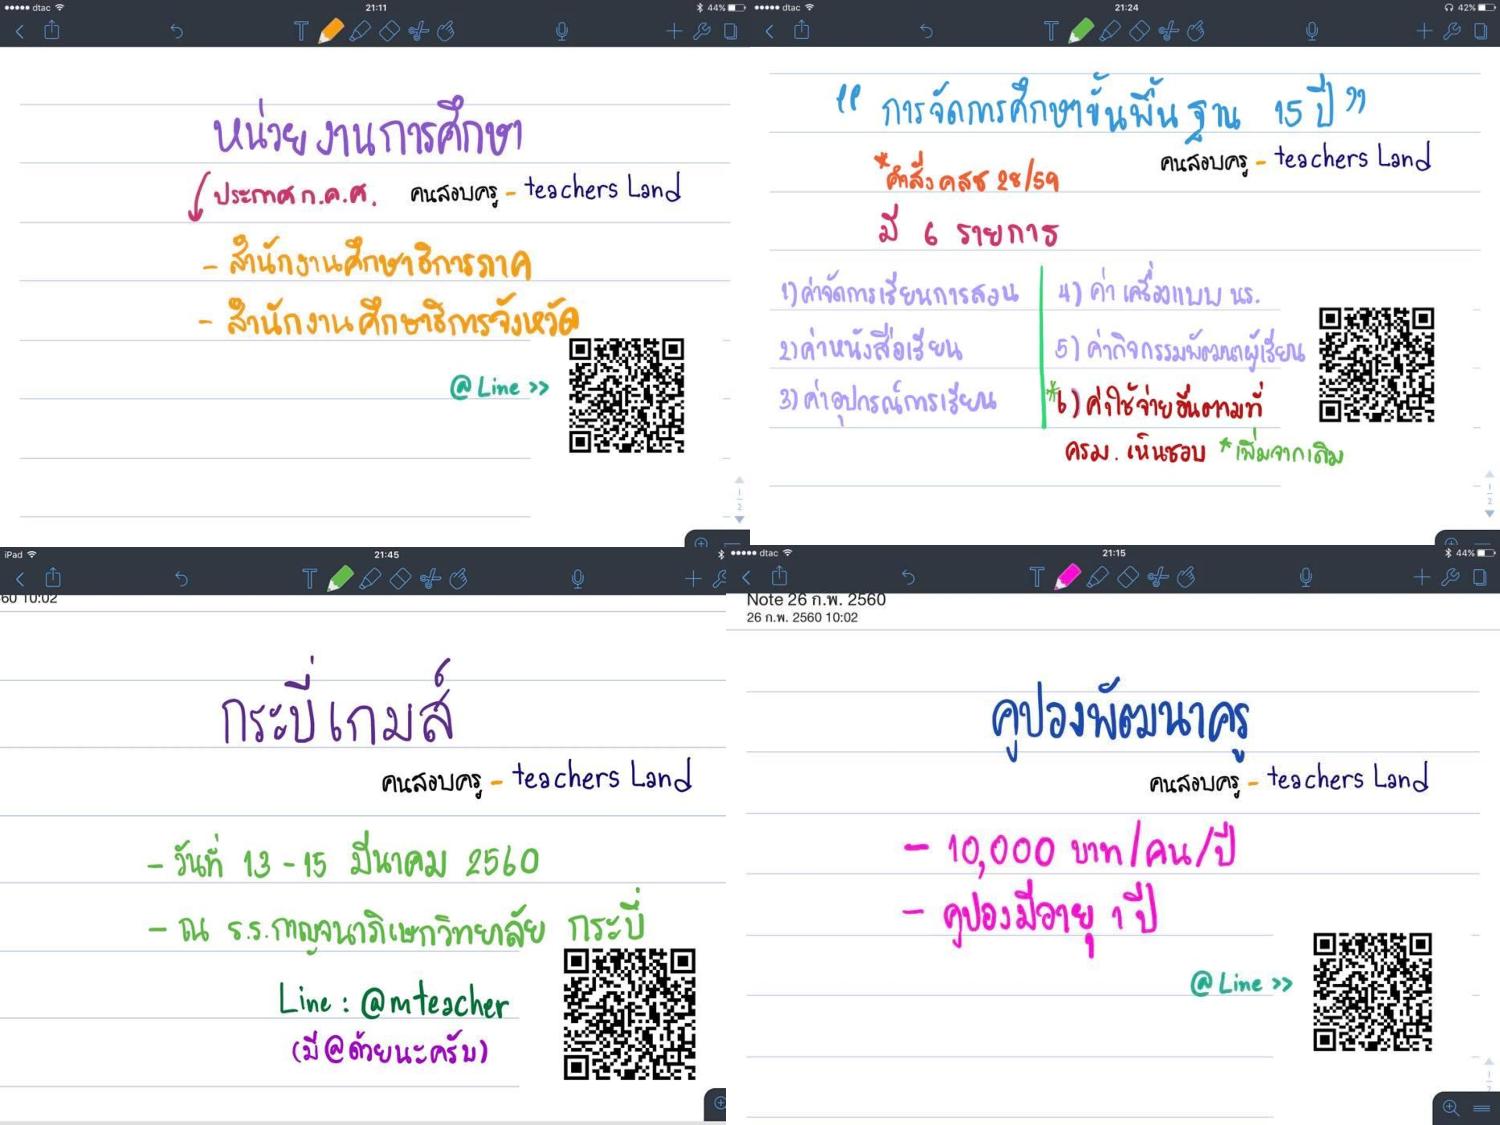 ●●●●● dtac
21:11
44%
หน่วยงานการศึกษา
ประกาศ ก.ค.ศ.
คนสอบครู - teachers Land
- สำนักงานศึกษาธิการภาค
- สำนักงานศึกษาธิการจังหวัด
@Line >>
1
2
●●●●● dtac
21:24
42%
" การจัดการศึกษาขั้นพื้นฐาน 15 ปี "
คนสอบครู - teachers Land
*คำสั่ง คสช 28/59
มี 6 รายการ
1) ค่าจัดการเรียนการสอน
2) ค่าหนังสือเรียน
3) ค่าอุปกรณ์การเรียน
4) ค่าเครื่องแบบ นร.
5) ค่ากิจกรรมพัฒนาผู้เรียน
*6) ค่าใช้จ่ายอื่นตามที่
ครม. เห็นชอบ *เพิ่มจากเดิม
1
2
iPad
21:45
60 10:02
กระบี่เกมส์
คนสอบครู - teachers Land
- วันที่ 13 - 15 มีนาคม 2560
- ณ ร.ร.กาญจนาภิเษกวิทยาลัย กระบี่
Line : @mteacher
(มี @ ด้วยนะครับ)
●●●●● dtac
21:15
44%
Note 26 ก.พ. 2560
26 ก.พ. 2560 10:02
คูปองพัฒนาครู
คนสอบครู - teachers Land
- 10,000 บาท/คน/ปี
- คูปองมีอายุ 1 ปี
@Line >>